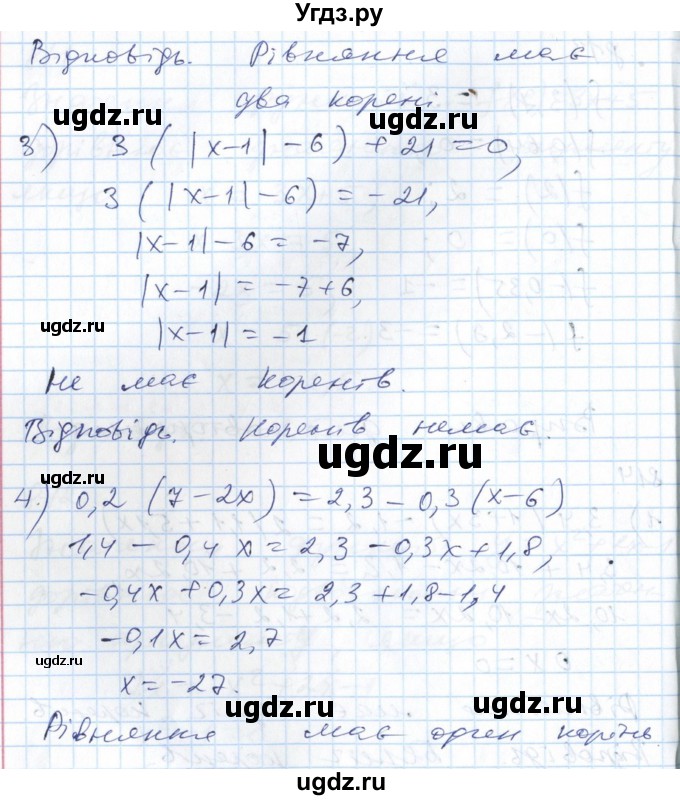 Угдз.ру
Відповідь. Рівняння має
два корені.
3) 3 ( |x-1| - 6) + 21 = 0,
3 ( |x-1| - 6) = -21,
|x-1| - 6 = -7,
|x-1| = -7+6,
|x-1| = -1
Не має коренів.
Відповідь. Коренів немає.
4.) 0,2 (7 - 2x) = 2,3 - 0,3 (x-6)
1,4 - 0,4x = 2,3 - 0,3x + 1,8,
-0,4x + 0,3x = 2,3 + 1,8 - 1,4
-0,1x = 2,7
x = -27.
Рівняння має один корінь.
ugdz.ru
ugdz.ru
ugdz.ru
ugdz.ru
ugdz.ru
ugdz.ru
ugdz.ru
ugdz.ru
ugdz.ru
ugdz.ru
ugdz.ru